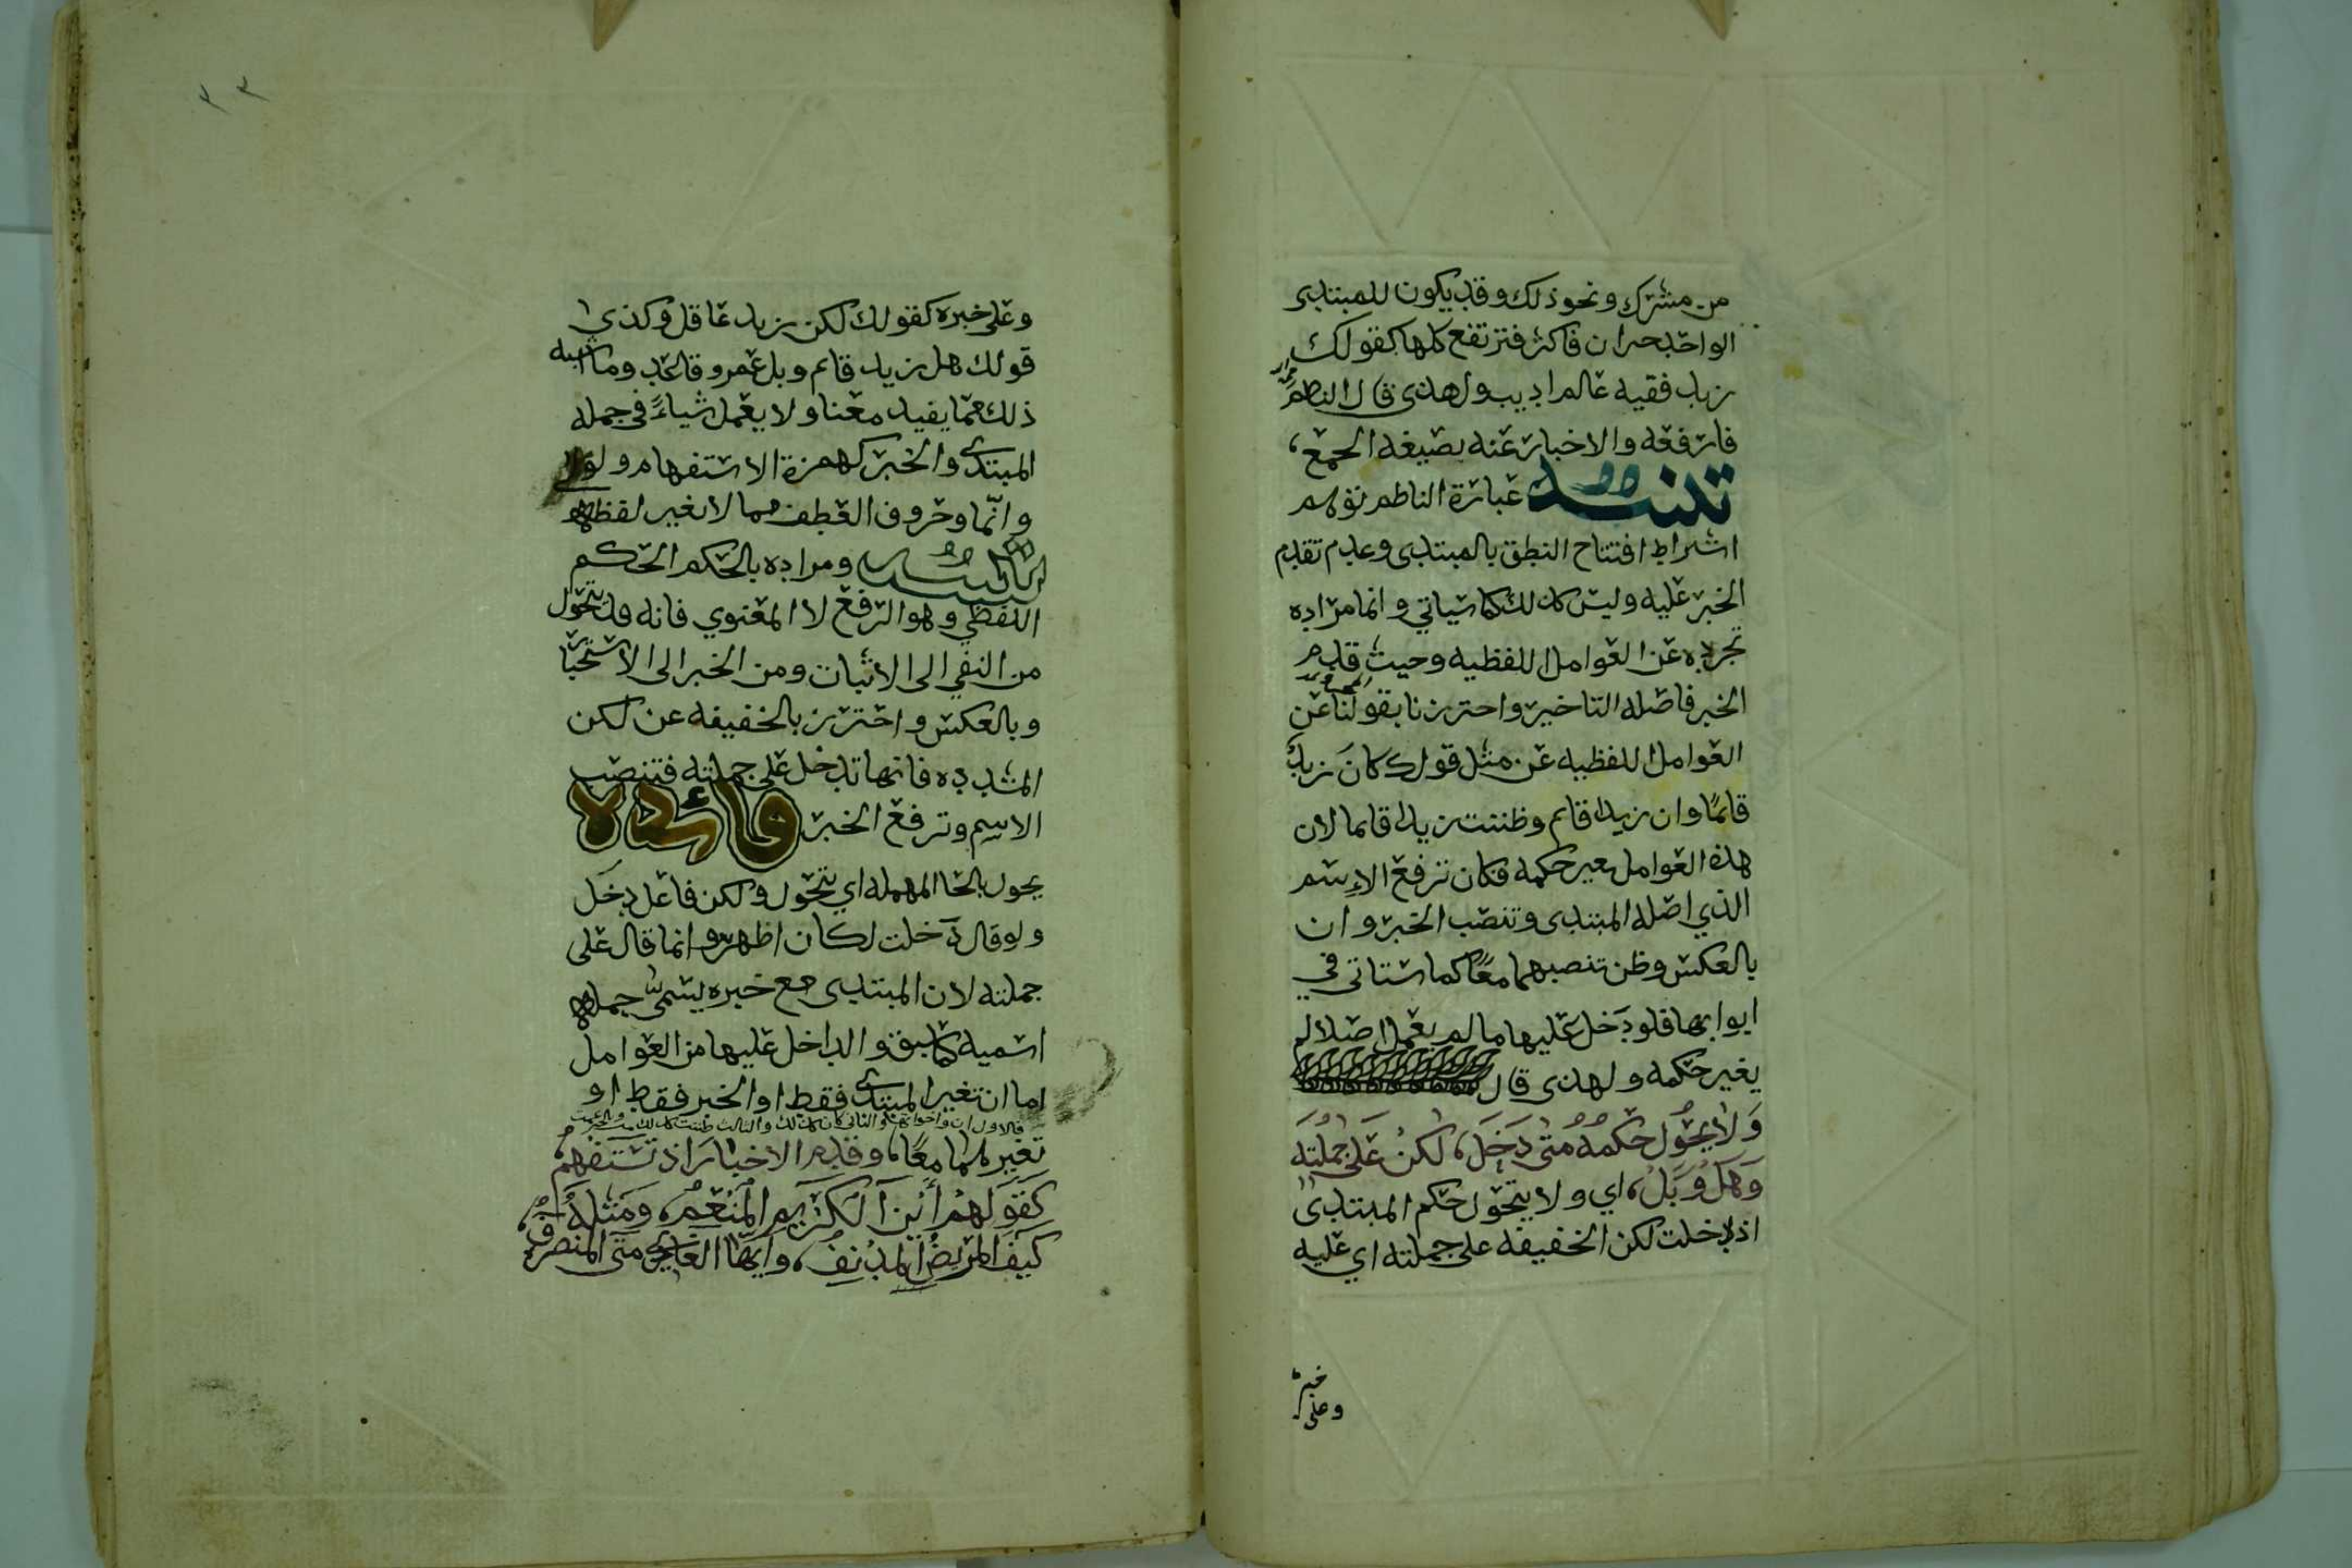 من مشرك ونحو ذلك وقد يكون للمبتدى
الواحد خبران فاكثر فترتفع كلها كقولك
زيد فقيه عالم اديب ولهذى قال الناظم
فارفعه والاخبار عنه بصيغه الجمع
تنبيه عبارة الناظم توهم
اشراط افتتاح النطق بالمبتدى وعدم تقدم
الخبر عليه وليس كذلك كما سياتي وانما مراده
تجرده عن العوامل اللفظيه وحيث قدم
الخبر فاصله التاخير واحترزنا بقولنا عن
العوامل اللفظيه عن مثل قولك كان زيد
قائمًا وان زيدا قائم وظننت زيدا قائما لان
هذه العوامل تغير حكمه فكان ترفع الاسم
الذي اصله المبتدى وتنصب الخبر وان
بالعكس وظن تنصبهما معًا كما ستاتى في
ابوابها فلو دخل عليها ما لم يعمل اصلا لم
يغير حكمه ولهذى قال
وَلا يحَوُل حكمُهُ مَتى دَخَلَ، لكنْ عَلى جُملَتِه
وَهَلْ وَبَلْ، اي ولا يتحول حكم المبتدى
اذ دخلت لكن الخفيفه على جملته اي عليه
خبر
وعلى
٣٣
وعلى خبره كقولك لكن زيد عاقل وكذي
قولك هل زيد قائم وبل عمرو قاعد وما اشبه
ذلك مما يفيد معنا ولا يعمل شياءً في جمله
المبتدى والخبر كهمزة الاستفهام ولولا
وانّما وحروف العطف مما لا يغير لفظهما
ومراده بالحكم الحكم
اللفظي وهو الرفع لا المعنوي فانه قد يتحول
من النفي الى الاثبات ومن الخبر الى الاستخبا
وبالعكس واحترز بالخفيفه عن لكن
المشدده فانها تدخل على جملته فتنصب
الاسم وترفع الخبر فائده
يحول بالحا المهمله اي يتحول ولكن فاعل دخل
ولو قال دخلت لكان اظهر وانما قال على
جملته لان المبتدى مع خبره يسمى جمله
اسميه كما سبق والداخل عليها من العوامل
اما ان تغير المبتدى فقط او الخبر فقط او
فالاول ان واخواتها والثانى كان كذلك والثالث ظننت كذلك
تغيرهما معًا، وقدم الاخبارَ اذ تَسْتَفهِم
كَقَولهمْ أينَ الكَريم المُنْعِمُ، وَمَثله
كيفَ المَريضُ المدْنِفُ، وايّها الغادي متى المنصرفُ